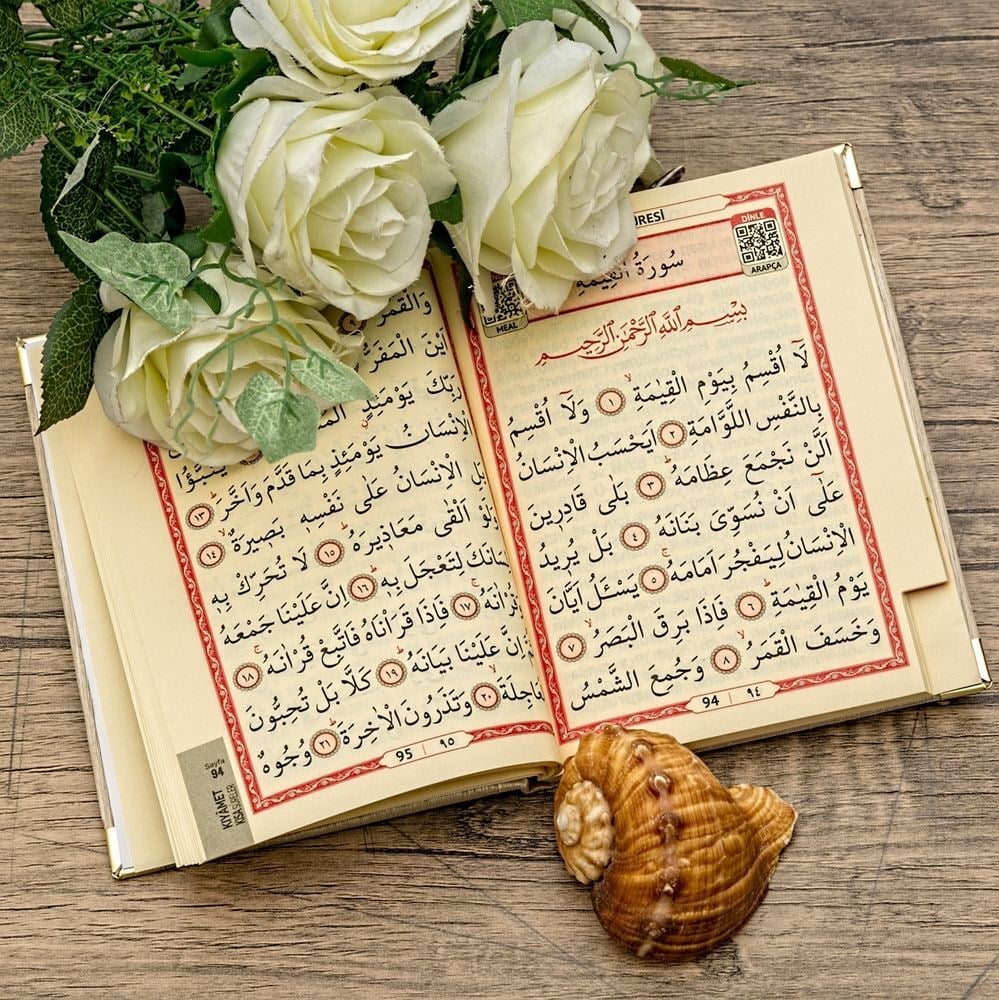 سُورَةُ الْقِيٰمَةِ
DİNLE
ARAPÇA
MEAL
بِسْمِ اللّٰهِ الرَّحْمٰنِ الرَّحِيمِ
لَٓا اُقْسِمُ بِيَوْمِ الْقِيٰمَةِۙ ١ وَلَٓا اُقْسِمُ
بِالنَّفْسِ اللَّوَّامَةِ ٢ اَيَحْسَبُ الْاِنْسَانُ
اَلَّنْ نَجْمَعَ عِظَامَهُۜ ٣ بَلٰى قَادِرِينَ
عَلٰٓى اَنْ نُسَوِّىَ بَنَانَهُ ٤ بَلْ يُرِيدُ
الْاِنْسَانُ لِيَفْجُرَ اَمَامَهُۚ ٥ يَسْـَٔلُ اَيَّانَ
يَوْمُ الْقِيٰمَةِۜ ٦ فَاِذَا بَرِقَ الْبَصَرُۙ ٧
وَخَسَفَ الْقَمَرُۙ ٨ وَجُمِعَ الشَّمْسُ
94 | ٩٤
وَالْقَمَرُ
اَيْنَ الْمَفَرُّ
رَبِّكَ يَوْمَئِذٍ
يُنَبَّؤُا الْاِنْسَانُ يَوْمَئِذٍ بِمَا قَدَّمَ وَاَخَّرَۜ ١٣
بَلِ الْاِنْسَانُ عَلٰى نَفْسِهِ بَصِيرَةٌۙ ١٤
وَلَوْ اَلْقٰى مَعَاذِيرَهُۜ ١٥ لَا تُحَرِّكْ بِهِ
لِتَعْجَلَ بِهِۜ ١٦ اِنَّ عَلَيْنَا جَمْعَهُ
١٧ فَاِذَا قَرَاْنَاهُ فَاتَّبِعْ قُرْاٰنَهُۚ ١٨
اِنَّ عَلَيْنَا بَيَانَهُۜ ١٩ كَلَّا بَلْ تُحِبُّونَ
٢٠ وَتَذَرُونَ الْاٰخِرَةَۜ ٢١ وُجُوهٌ
95 | ٩٥
Sayfa
94
KIYAMET
KISA SURELER